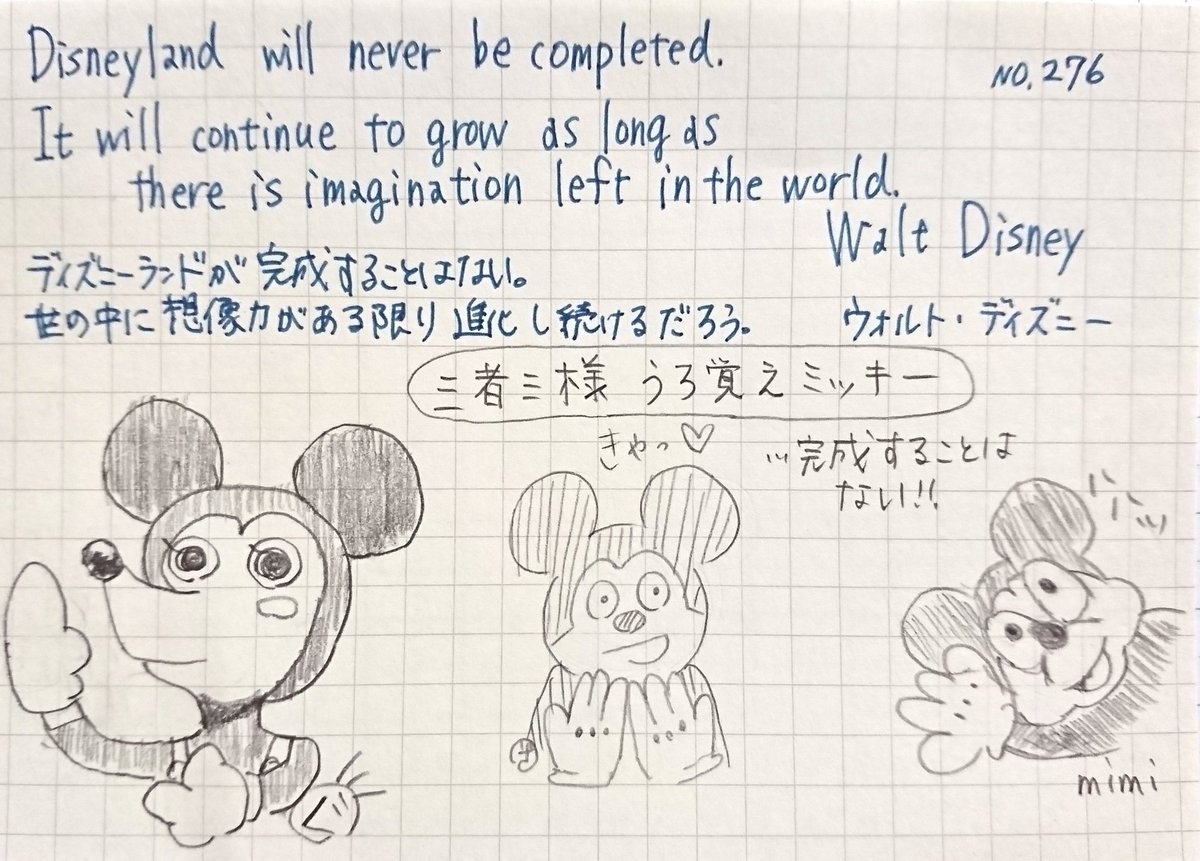 Disneyland will never be completed.
NO.276
It will continue to grow as long as
there is imagination left in the world.
Walt Disney
ディズニーランドが完成することはない。
世の中に想像力がある限り進化し続けるだろう。
ウォルト・ディズニー
三者三様 うろ覚えミッキー
きゃっ♡
…完成することは
ない!!
ハハッ
mimi